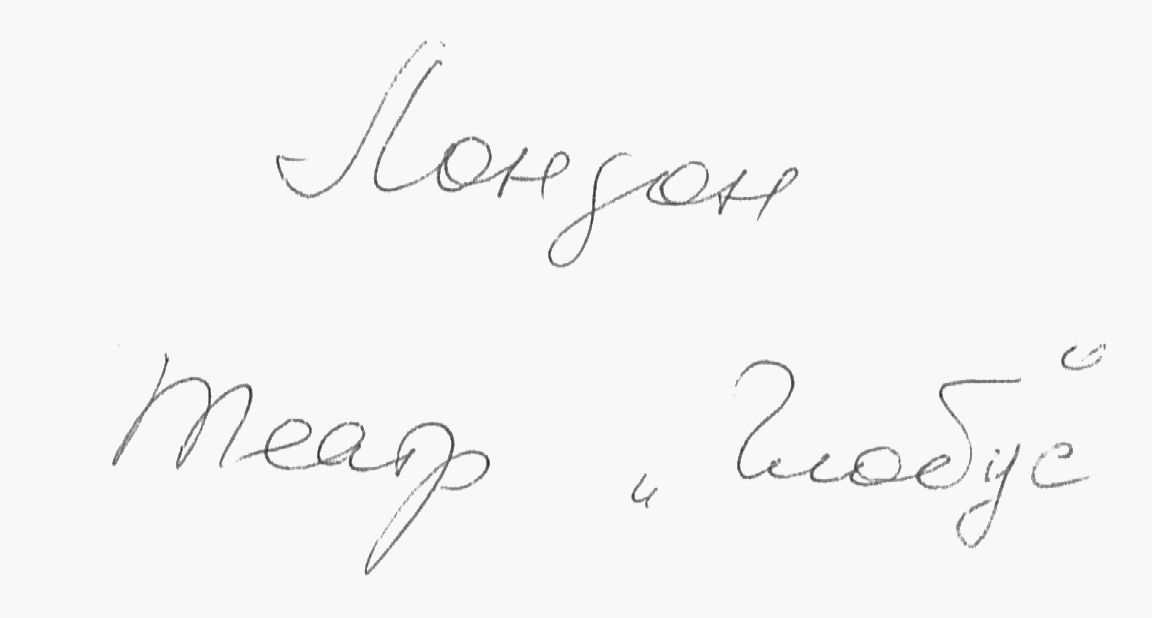 Лондон
Театр „Глобус“